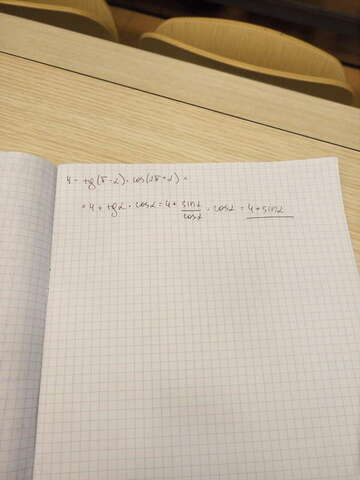 4 - tg(π-α)·cos(2π+α) =
= 4 + tgα · cosα = 4 + sinα/cosα · cosα = 4 + sinα